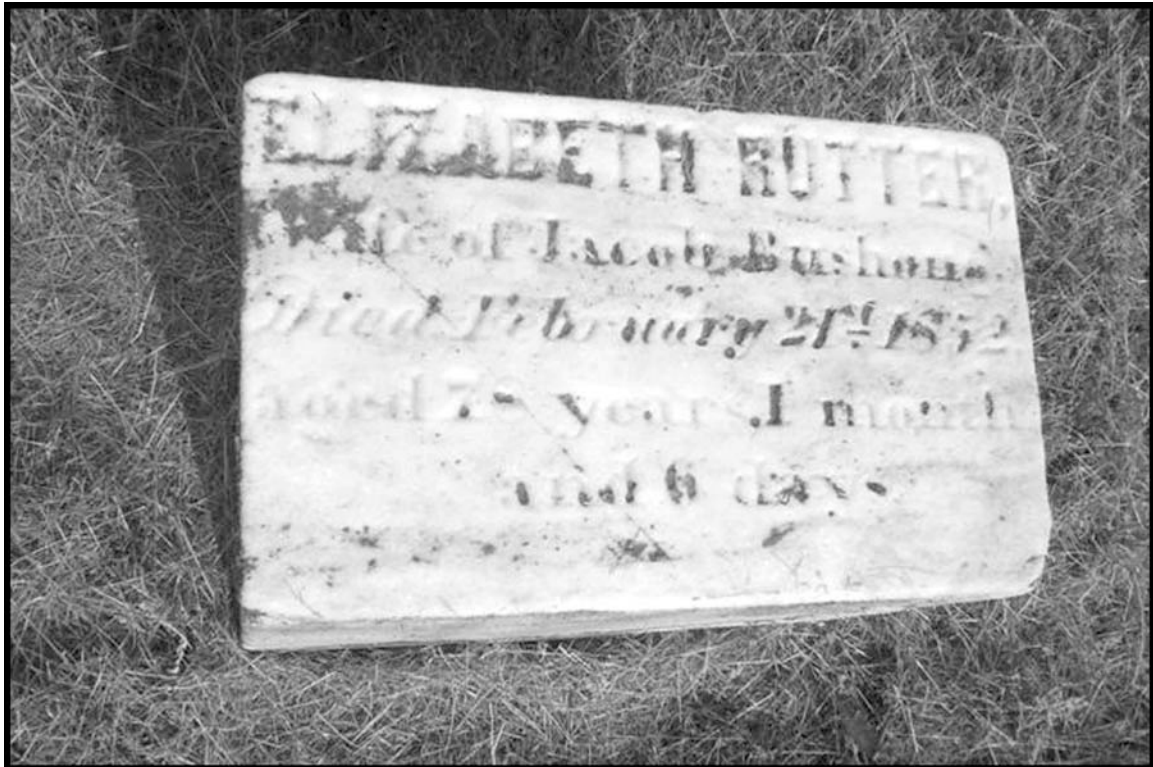 ELIZABETH RUTTER,
Wife of Jacob Bushong.
Died February 21st 1852,
aged years, 1 month
and 6 days